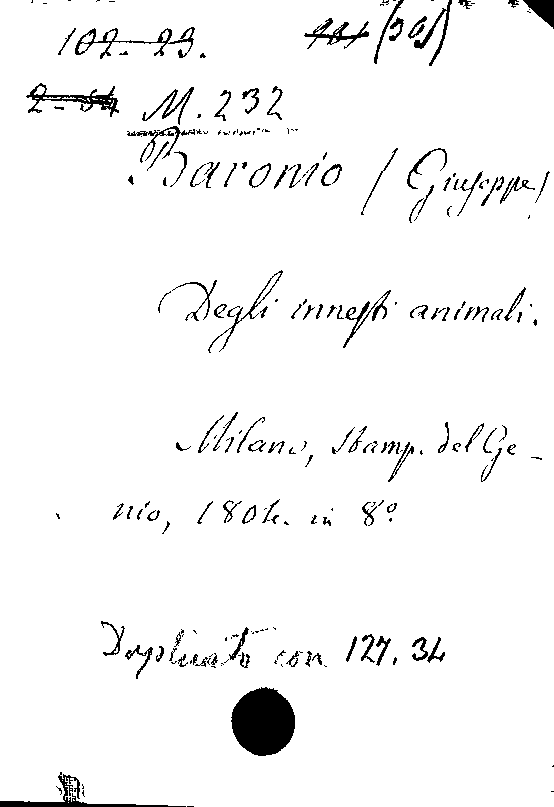 102-23. (39)
M. 232
Baronio (Giuseppe)
Degli innesti animali.
Milano, Stamp. del Ge-
nio, 1804. in 8º
Duplicato con 127.34